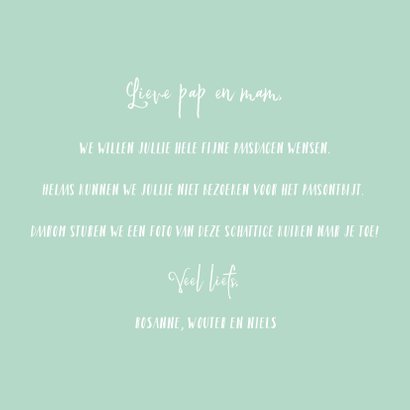 Lieve pap en mam,
WE WILLEN JULLIE HELE FIJNE PAASDAGEN WENSEN.
HELAAS KUNNEN WE JULLIE NIET BEZOEKEN VOOR HET PAASONTBIJT.
DAAROM STUREN WE EEN FOTO VAN DEZE SCHATTIGE KUIKEN NAAR JE TOE!
Veel liefs,
ROSANNE, WOUTER EN NIELS